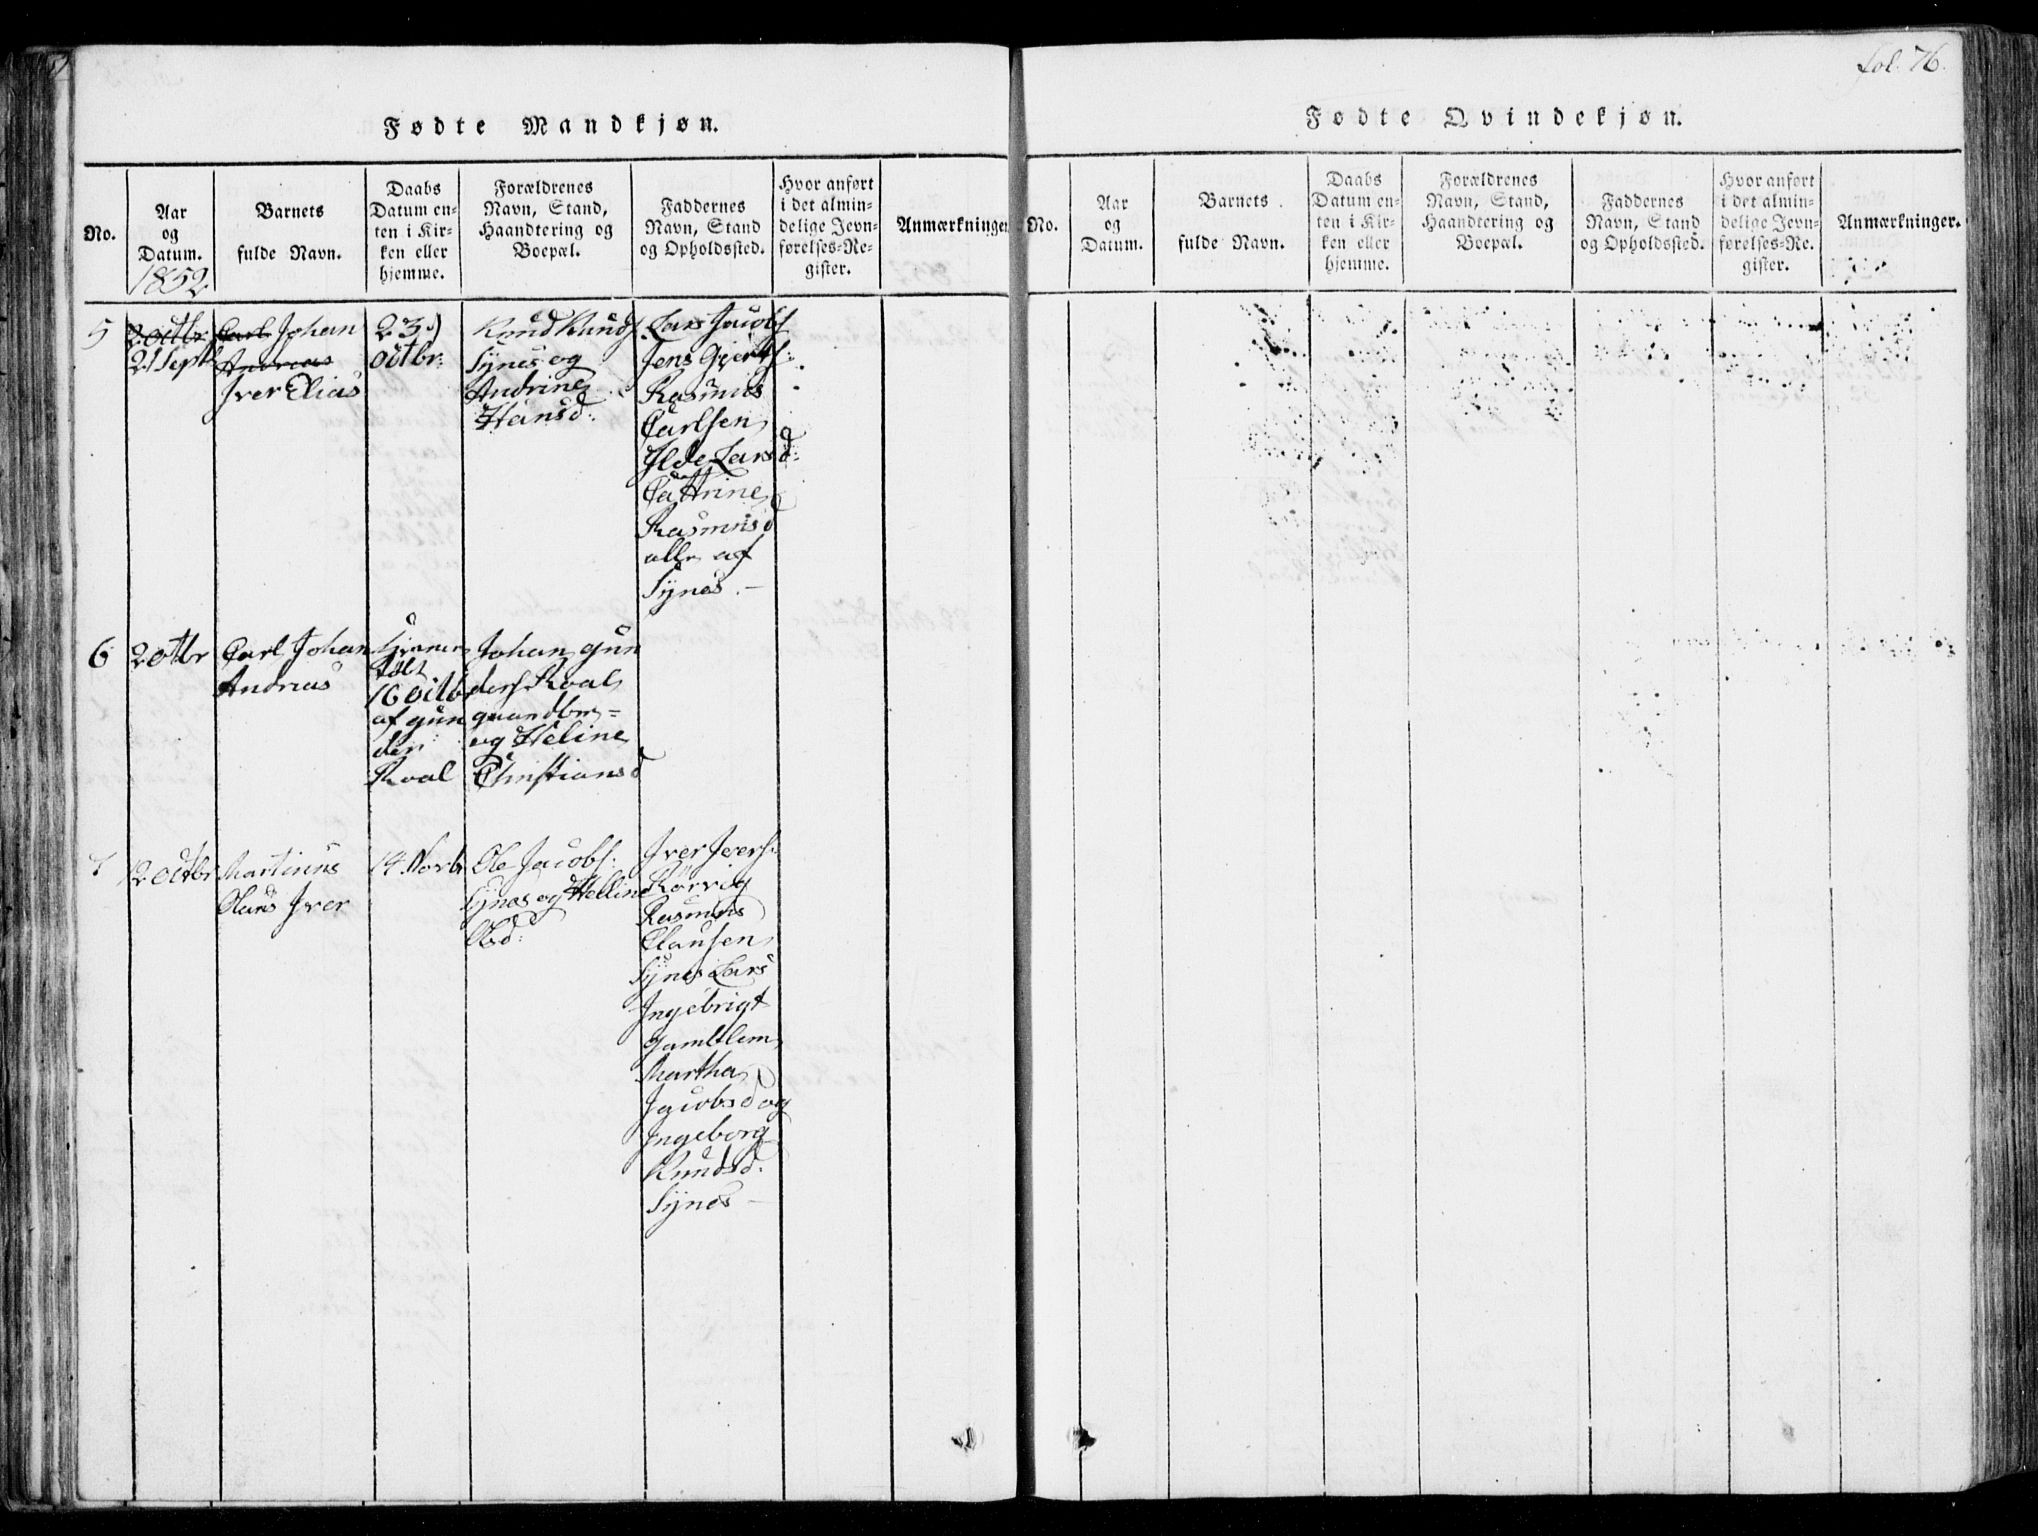 fol. 76.
Fødte Mandkjøn.
No.
Aar
og
Datum.
1852
Barnets
fulde Navn.
Daabs
Datum en-
ten i Kir-
ken eller
hjemme.
Forældrenes
Navn, Stand,
Haandtering og
Boepæl.
Faddernes
Navn, Stand
og Opholdssted.
Hvor anført
i det almin-
delige Jevn-
førelses-Re-
gister.
Anmærkninger
5
2 octbr
21 Septb
Carl Johan
Andreas
Iver Elias
23
octbr:
Knud Knuds
Synes og
Andrine
Hansd:
Lars Jacobs
Jens Gjerts:
Rasmus
Carlsen
Ilde Larsd:
Cathrine
Rasmusd
alle af
Synes. —
6
2 octbr
Carl Johan
Andreas
16 octb
af gun
der
Roal
Johan gun
ders Roal
og Heline
Christiansd
7
12 octbr
Martinus
Olaus Iver
14 Novbr
Ole Jacobs:
Synes og Helline
Olsd:
Iver Ivers:
Rörvig
Rasmus
Clausen
Synes Lars
Ingebrigt
Gamblem
Martha
Jacobsd og
Ingeborg
Knudsd:
Synes —
Fødte Qvindekjøn.
No.
Aar
og
Datum.
Barnets
fulde Navn.
Daabs
Datum en-
ten i Kir-
ken eller
hjemme.
Forældrenes
Navn, Stand,
Haandtering og
Boepæl.
Faddernes
Navn, Stand
og Opholdssted.
Hvor anført
i det almin-
delige Jevn-
førelses-Re-
gister.
Anmærkninger.